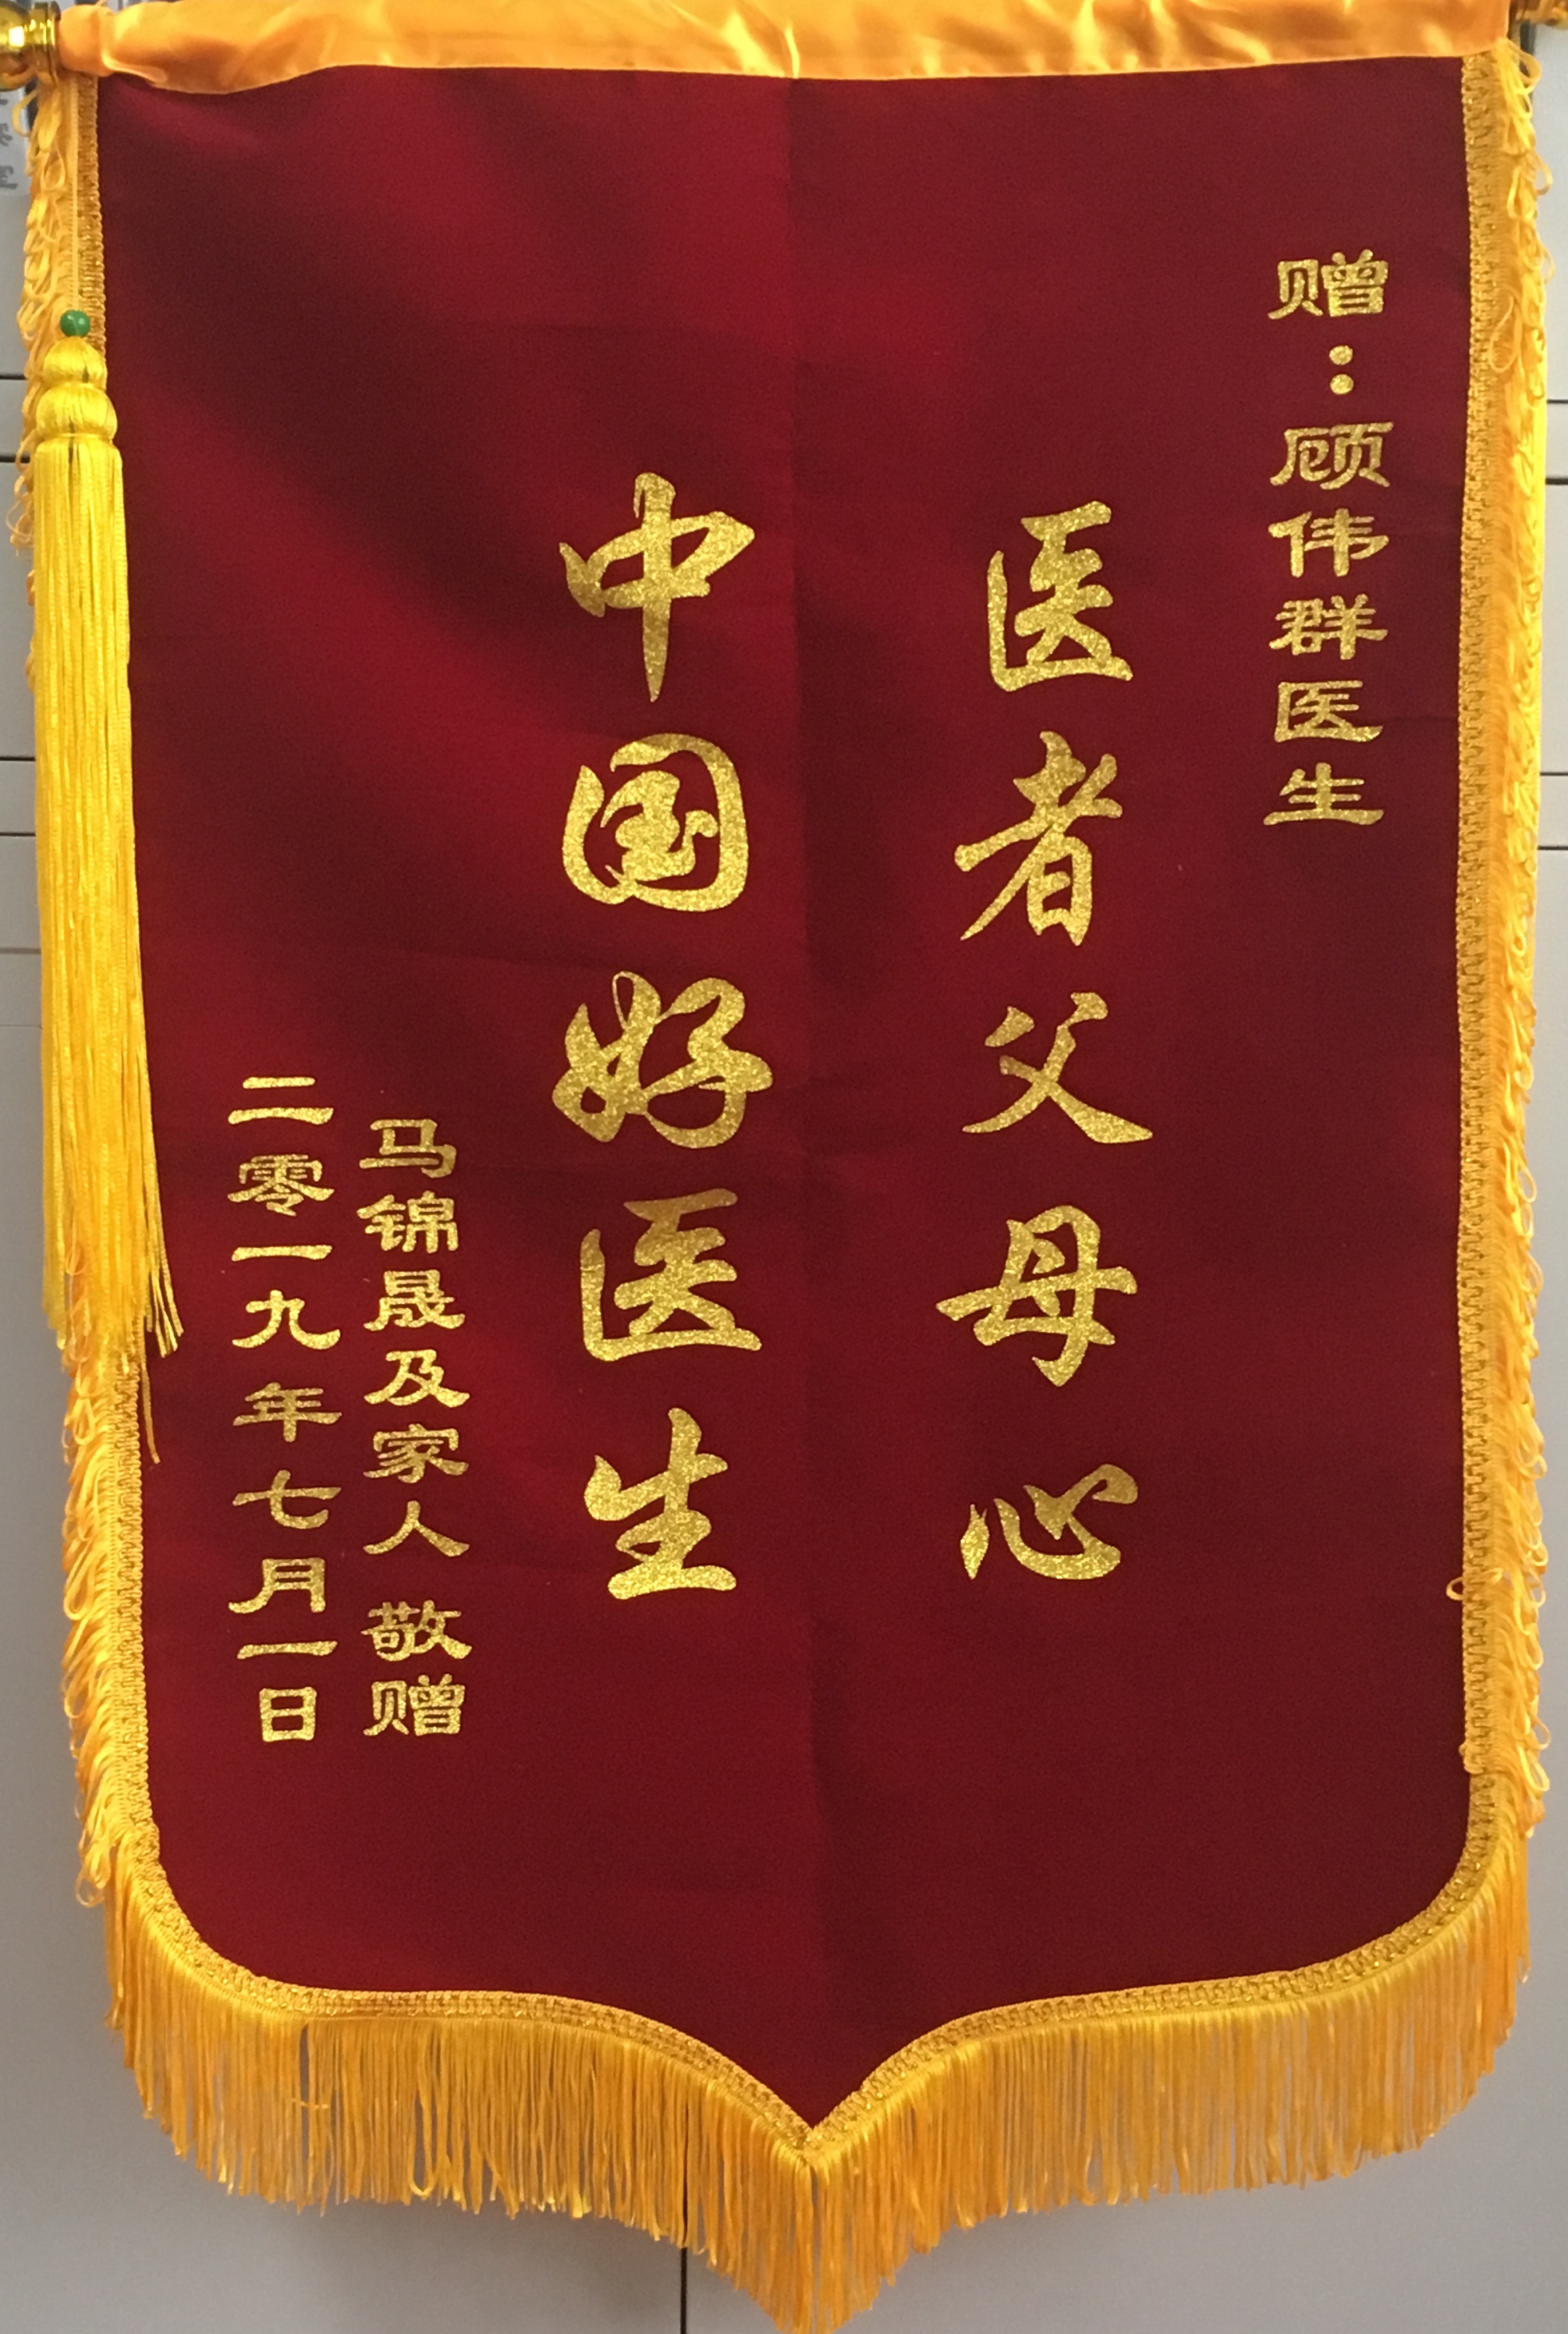 赠：顾伟群医生
医者父母心
中国好医生
马锦晟及家人 敬赠
二零一九年七月一日